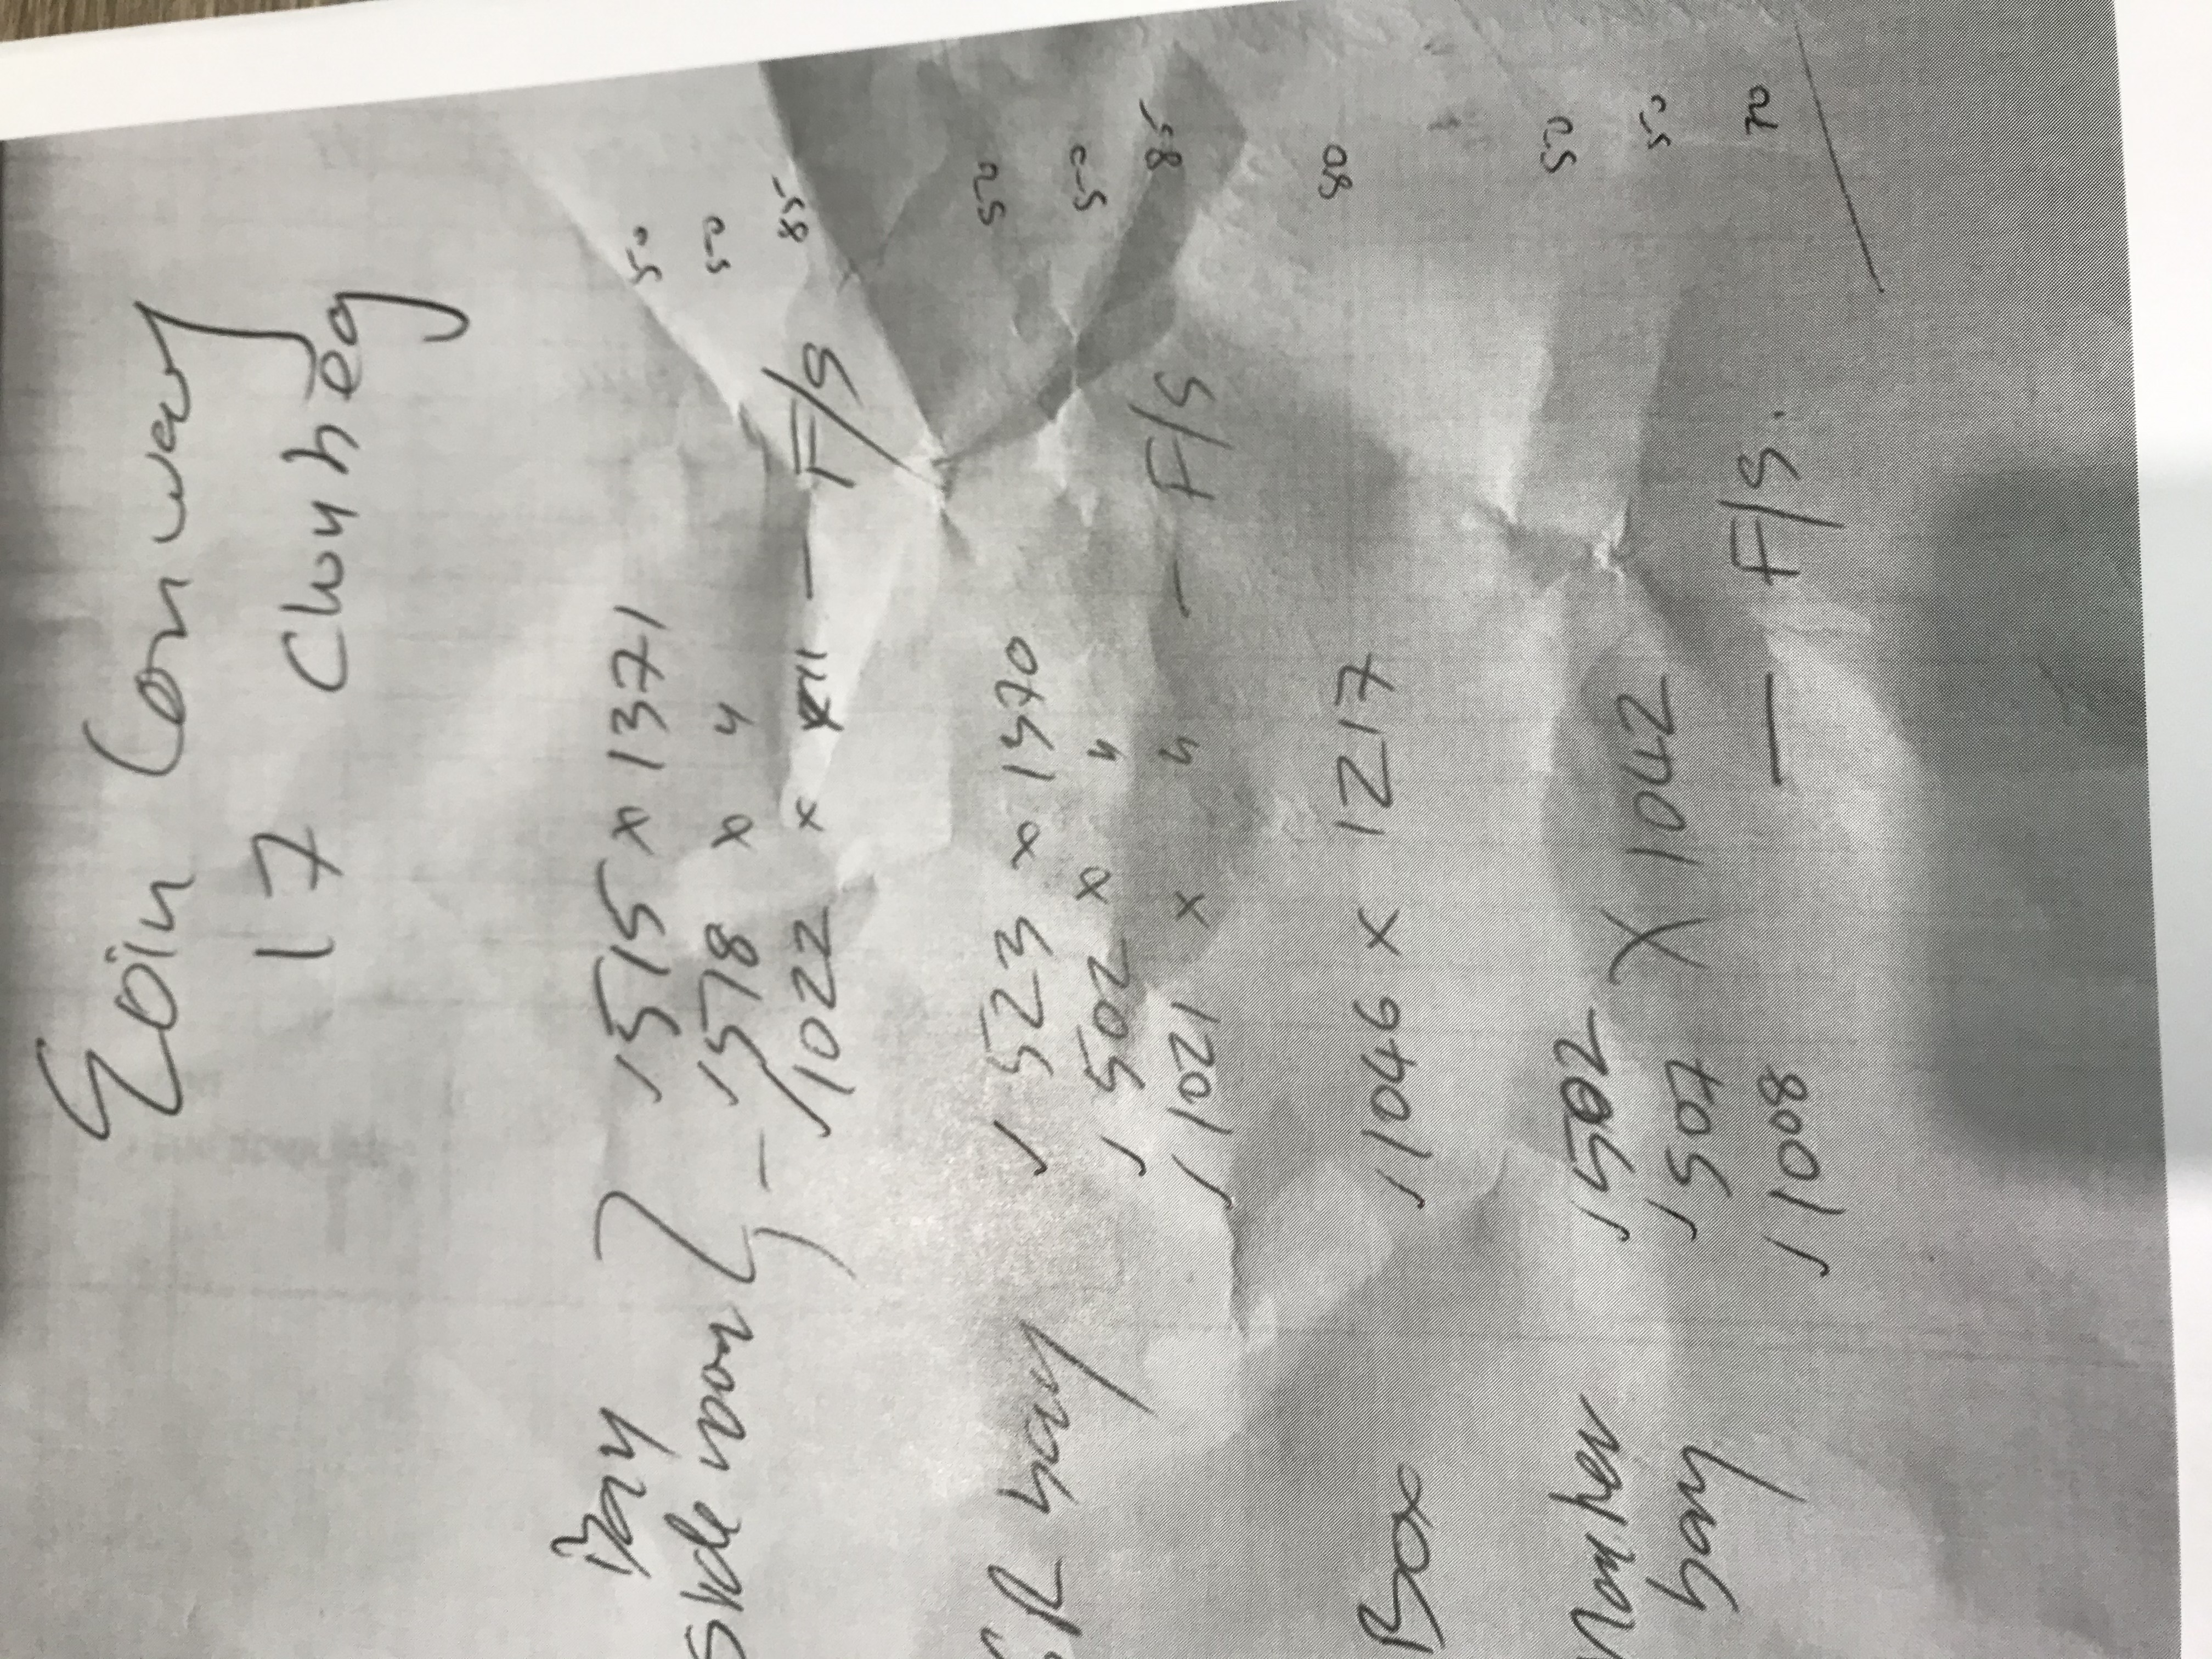 Eoin Conway
17 Clogheg
Bay 1515 x 1371 50
Side room } - 1578 x " 50
1022 x " - F/S 85
SR bay 1523 x 1370 50
1502 x " 50
1021 x " - F/S 85
Box 1046 x 1217 80
1502 50
bay 1507 x 1042 50
1008 — F/S. 70